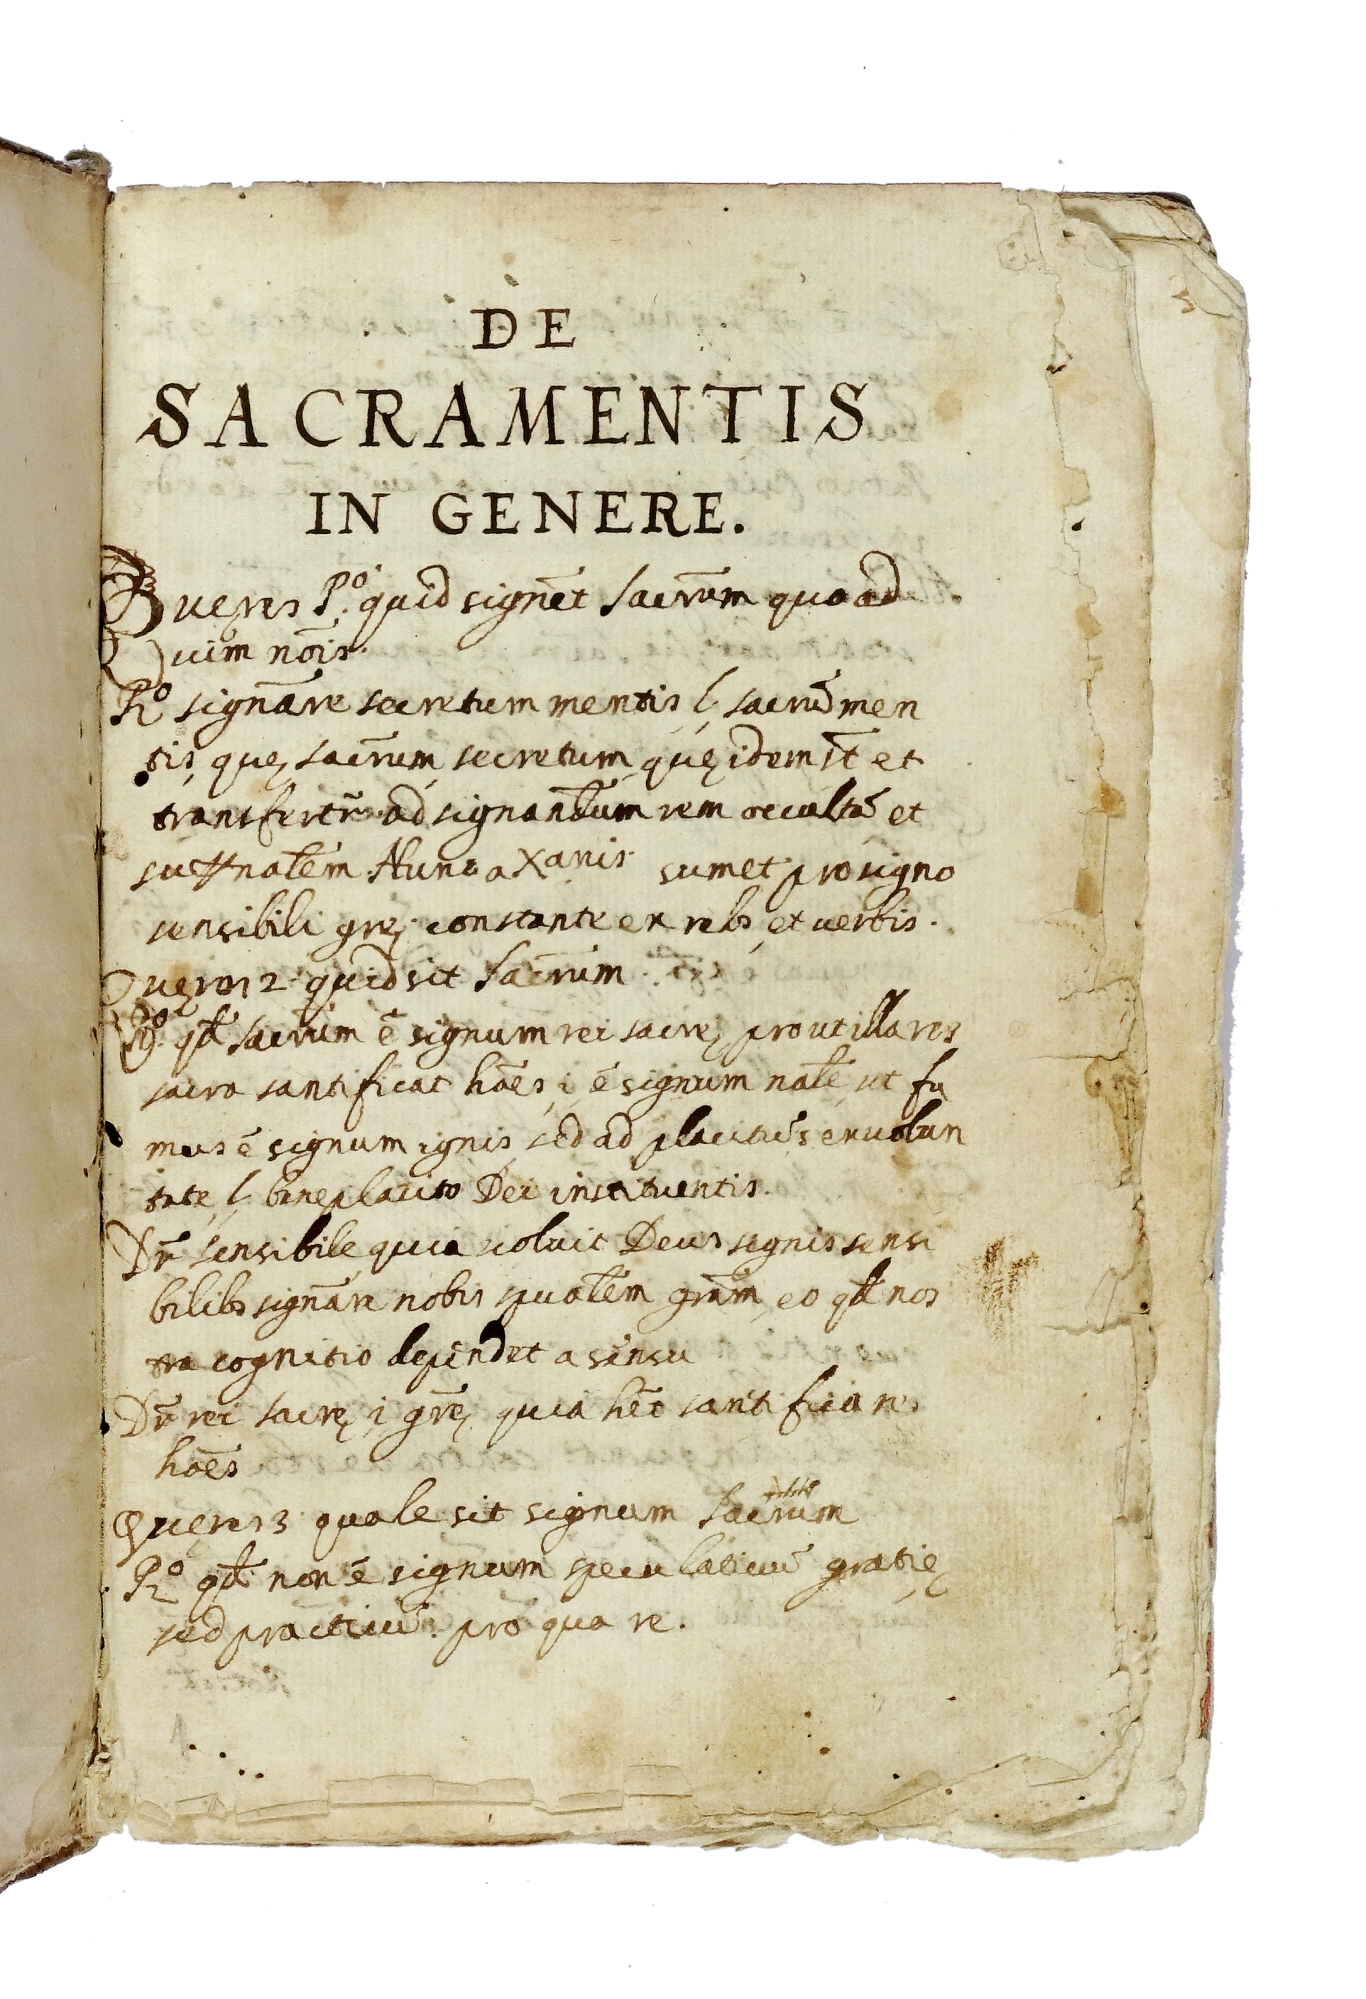 DE
SACRAMENTIS
IN GENERE.
Queres P.º quid signēt sacrūm quoad
uim nōis.
Rº signāre secretum mentis l, sacrū men
tis, quę sacrūm secretum, quę idem st̄ et
transfertr̄ ad signandum rem occultā et
natēm. Nunc a Xanis sumet pro signo
sensibili grę constante ex rebs, et uerbis.
Queres 2 quid sit sacrūm.
Rº. qd̄ sacrūm ē signum rei sacrę, prout illa res
sacra santificat hōes, i, ē signum natē, ut fu
mus ē signum ignis sed ad placitū, s ex uolun
tate, l, beneplacito Dei instituentis.
Dr̄ sensibile quia uoluit Deus signis sensi
bilibs signāre nobis spualēm grām, eo qd̄ nos
tra cognitio dependet a sensu
Dr̄ rei sacrę, i, grę, quia hēt santificare
hōes
Queres 3 quale sit signum sacrūm
Rº qd̄ non ē signum speculatiuū gratię
sed practicū. pro qua re.